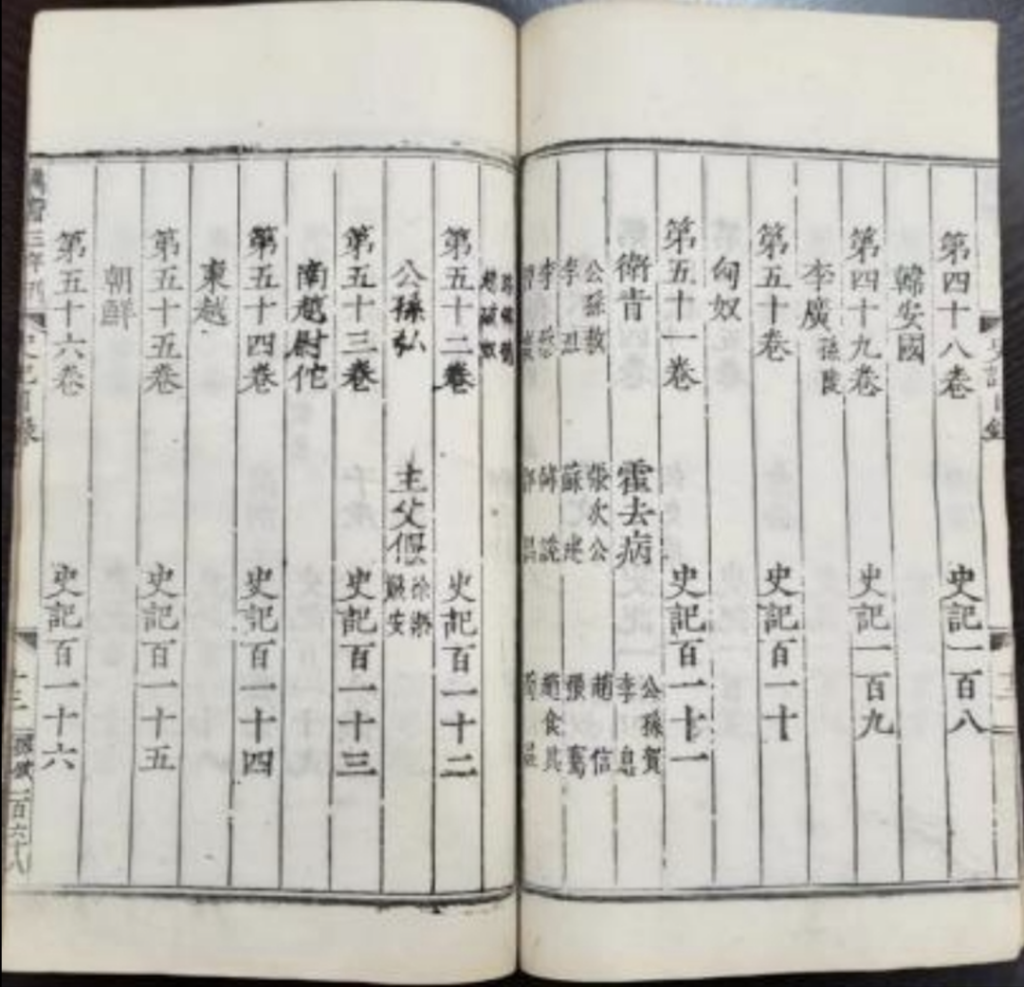 史記目錄
第四十八卷 史記一百八
韓安國
第四十九卷 史記一百九
李廣 孫陵
第五十卷 史記百一十
匈奴
第五十一卷 史記百一十一
衛青 霍去病 公孫賀
李息
公孫敖 張次公 趙信
李沮 蘇建 張騫
李蔡 趙食其
第五十二卷 史記百一十二
公孫弘 主父偃 徐樂
嚴安
第五十三卷 史記百一十三
南越尉佗
第五十四卷 史記百一十四
東越
第五十五卷 史記百一十五
朝鮮
第五十六卷 史記百一十六
史記目錄